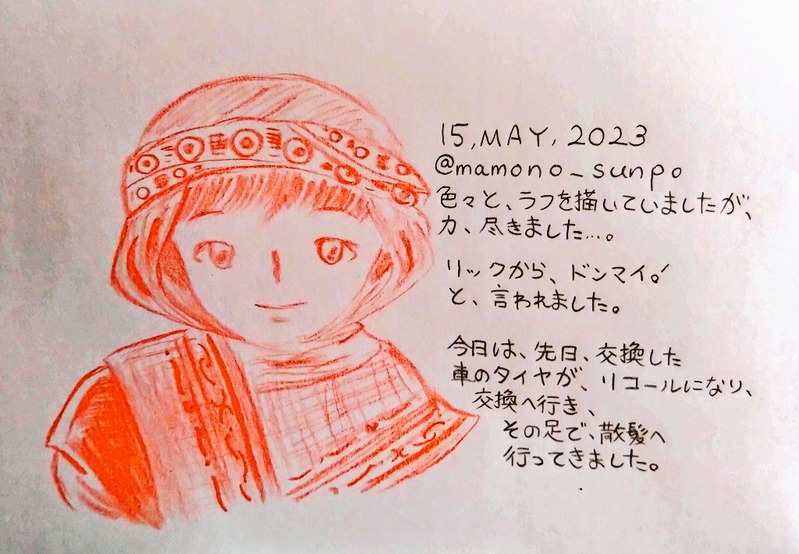 15, MAY, 2023
@mamono_sunpo
色々と、ラフを描いていましたが、
力、尽きました…。
リックから、ドンマイ!
と、言われました。
今日は、先日、交換した
車のタイヤが、リコールになり、
交換へ行き、
その足で、散髪へ
行ってきました。